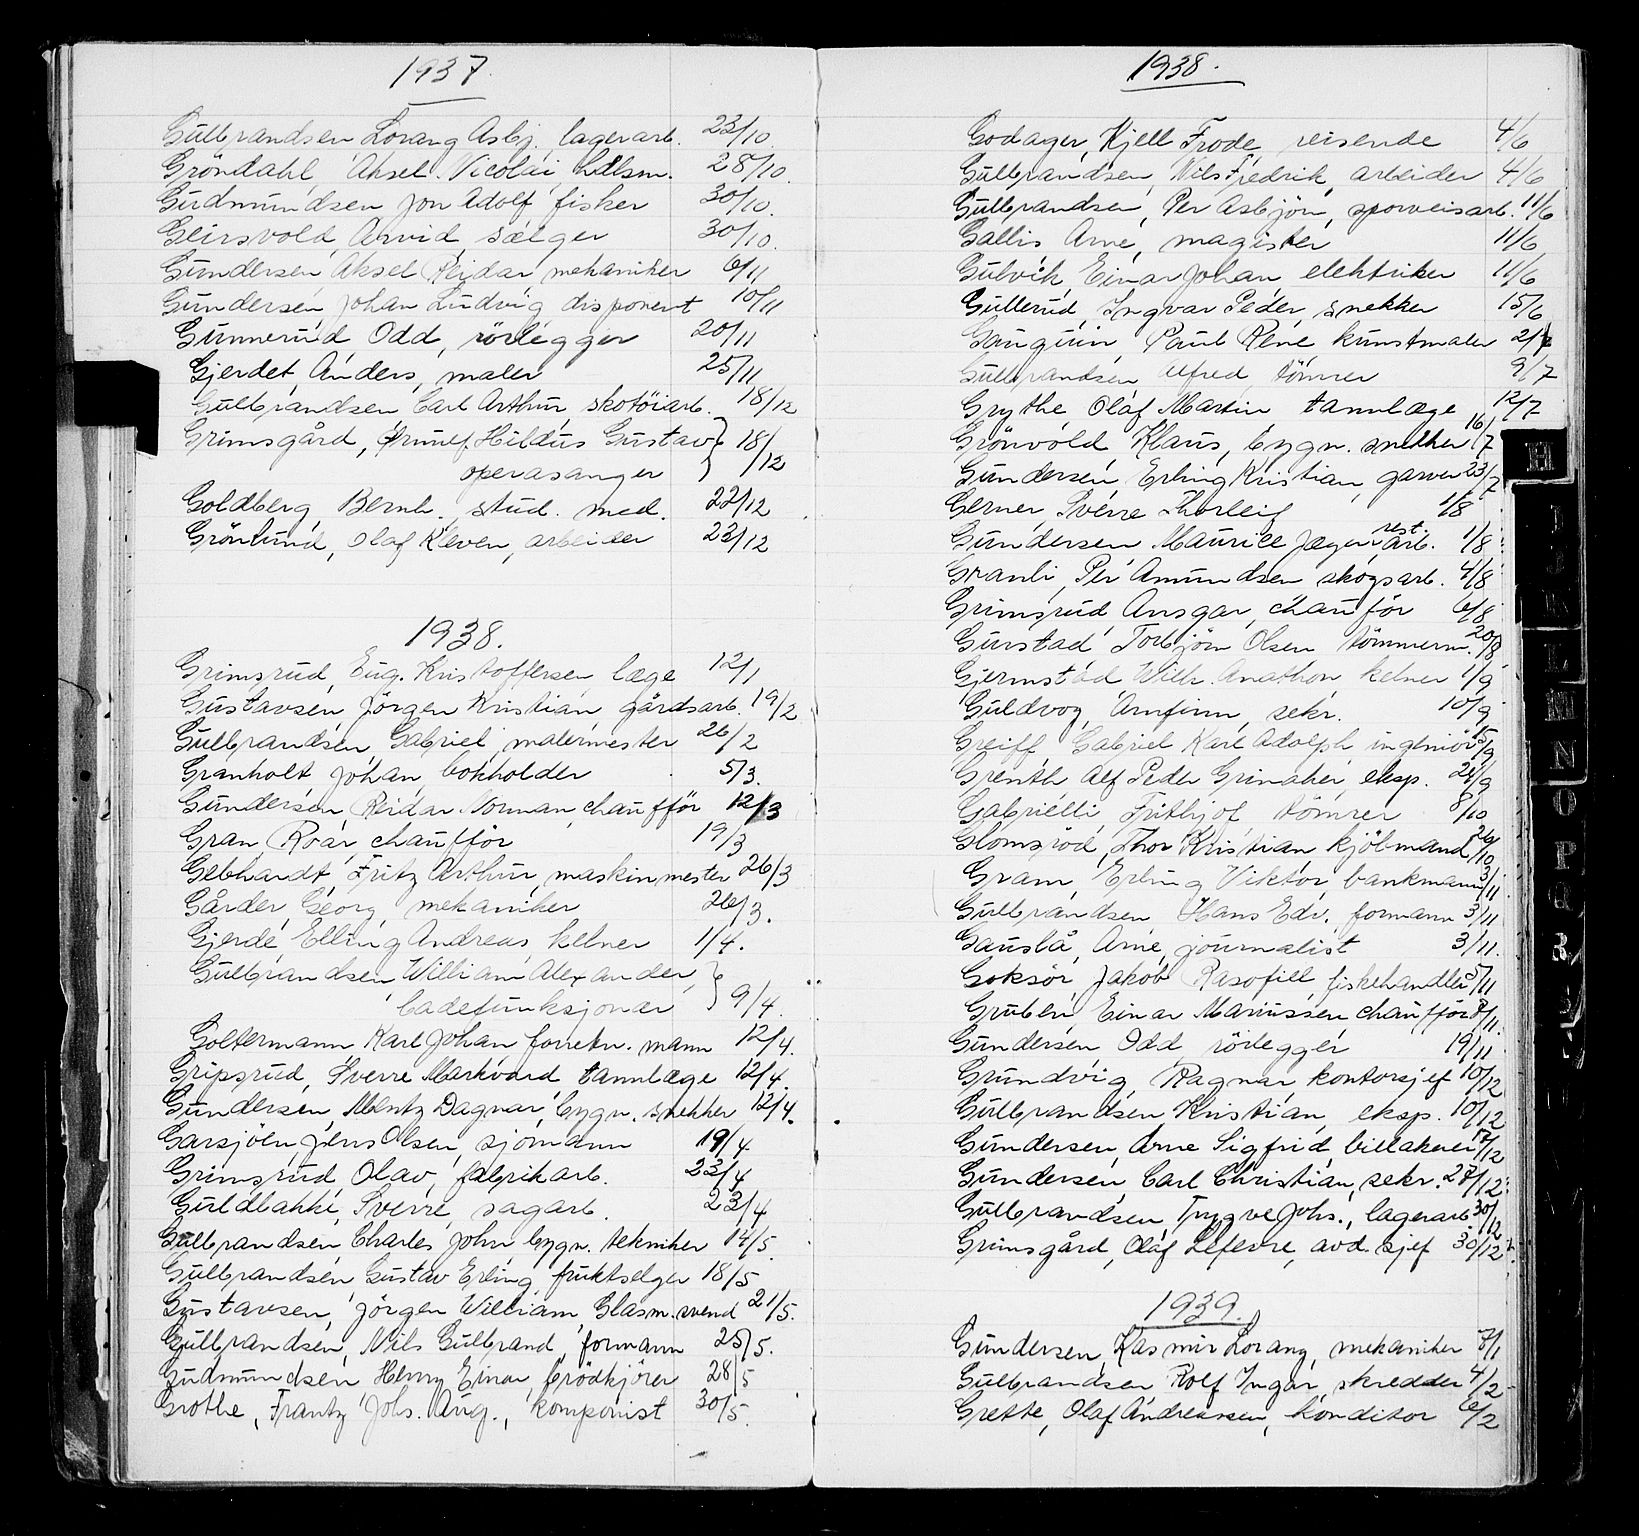 1937.
Gulbrandsen Lorang Asbj. lagerarb. 23/10.
Gröndahl, Aksel. Nicolai hdlsm. 28/10.
Gudmundsen Jon Adolf fisker 30/10.
Geirsvold, Arvid, sælger 30/10.
Gundersen, Aksel Reidar, mekaniker 6/11
Gundersen Johan Ludvig disponent 10/11
Gunnerud Odd, rörlegger 20/11
Gjerdet, Anders, maler 25/11
Gulbrandsen Carl Arthur skotöiarb. 18/12
Grimsgård, Hildus Gustav 18/12
operasanger
Goldberg, Bernh. stud. med. 22/12
Grönlund, Olaf Kleven, arbeider 23/12
1938.
Grimsrud, Eug. Kristoffersen læge 12/1
Gustavsen, Jörgen Kristian gårdsarb. 19/2
Gulbrandsen, Gabriel, malermester 26/2
Granholt Johan bokholder 5/3.
Gundersen, Reidar Norman, chaufför 12/3
Gran Roar chaufför 19/3
Gebhardt, Fritz Arthur, maskinmester 26/3
Gårder, Georg, mekaniker 26/3.
Gjerde, Elling Andreas, kelner 1/4.
Gulbrandsen William Alexander,
badefunksjonær 9/4.
Goltermann Karl Johan forretn. mann 12/4.
Gripsrud, Sverre Markvard tannlæge 12/4.
Gundersen, Mentz Dagnar, bygn. snekker 12/4.
Garsjöen, Jens Olsen, sjömann 19/4
Grimsrud, Olav, fabrikarb. 23/4
Guldbakke, Sverre, sagarb. 23/4
Gulbrandsen, Charles John bygn. tekniker 14/5.
Gulbrandsen, Gustav Erling, fruktselger 18/5
Gustavsen, Jörgen William, Glasm. svend 21/5.
Gulbrandsen, Nils Gulbrand, formann 25/5.
Gudmundsen Henry Einar, brödkjörer 28/5
Grothe, Frantz Johs. Aug., komponist 30/5.
1938.
Godager, Kjell Frode, reisende 4/6
Gulbrandsen, Nils Fredrik, arbeider 4/6
Gulbrandsen, Per Asbjörn, sporveisarb. 11/6
Gallis, Arne, magister 11/6
Gulvik, Einar Johan, elektriker 11/6
Gullerud, Ingvar Peder, snekker 15/6
Gauguin, Paul René kunstmaler 2/7
Gulbrandsen Alfred, tömrer 9/7
Grythe, Olaf Martin tannlæge 12/7
Grönvold Klaus, bygn. snekker 16/7
Gundersen, Erling Kristian, garver 23/7
Gerner, Sverre Thorleif 1/8
Gundersen Maurice Jæger rest. arb. 1/8
Granli, Per Amundsen skogsarb. 4/8
Grimsrud, Ansgar, chaufför 6/8
Gurstad, Torbjörn Olsen tömmerm. 20/8
Gjermstad Wilh. Anathon kelner 1/9
Guldvog, Arnfinn, sekr. 10/9
Greiff, Gabriel Karl Adolph ingeniör 15/9
Grenth Alf Peder Grinaker, eksp. 24/9
Gabrielli, Frithjof tömrer 8/10
Glomsröd, Thor Kristian kjöbmand 26/10
Gram, Erling Viktor, bankmann 3/11
Gulbrandsen Hans Edv. formann 3/11
Gauslå, Arne, journalist 3/11.
Goksör, Jakob Rasofill fiskehandler 5/11
Gruben, Einar Mariussen chaufför 8/11.
Gundersen, Odd, rörlegger 19/11
Grundvig, Ragnar, kontorsjef 10/12
Gulbrandsen, Kristian, eksp. 10/12
Gundersen, Arne Sigfrid, billakerer 17/12
Gundersen, Carl Christian, sekr. 27/12
Gulbrandsen, Trygve Johs., lagerarb. 30/12
Grimsgård, Olaf Lefevre, avd. sjef 30/12
1939.
Gundersen, Kasmir Lorang, mekaniker 7/1
Gulbrandsen, Rolf Ingar, skredder 4/2
Grette, Olaf Andreassen, konditor 6/2
H
I
J
K
L
M
N
O
P
Q
R